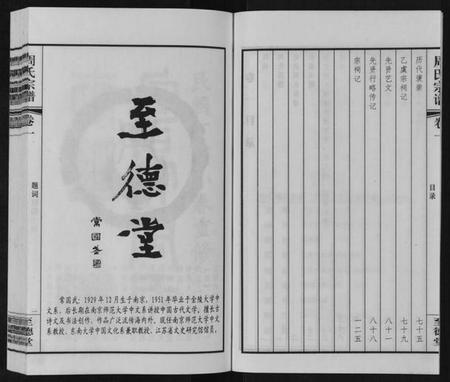 周氏宗谱
卷一
目录
至德堂
历代褒崇 七十五
乙虞宗祠记 七十九
先贤艺文 八十一
先贤行略传记 八十八
宗祠记 一二五
周氏宗谱
卷一
题词
一
至德堂
至德堂
常国武
常国武：1929年12月生于南京，1951年毕业于金陵大学中
文系。后长期在南京师范大学中文系讲授中国古代文学，擅长古
诗文及书法创作，作品广泛流传海内外。现任南京师范大学中文
系教授、东南大学中国文化系兼职教授、江苏省文史研究馆馆员。